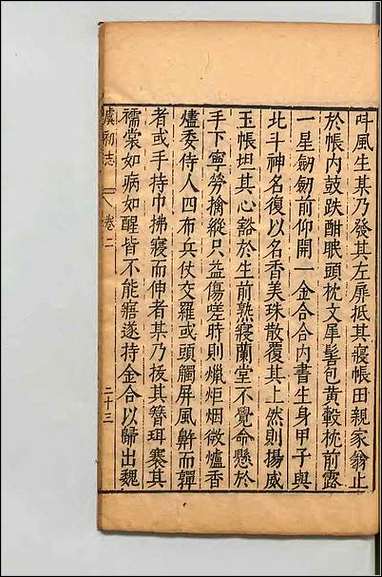 叶風生某乃發其左扉抵其寢帳田親家翁止
於帳内鼓趺酣眠頭枕文犀髻包黄縠枕前露
一星劒劒前仰開一金合合内書生身甲子與
北斗神名復以名香美珠散覆其上然則揚威
玉帳坦其心豁於生前熟寢蘭堂不覺命懸於
手下寧勞擒縱只益傷嗟時則蠟炬烟微爐香
燼委侍人四布兵仗交羅或頭觸屏風鼾而嚲
者或手持巾拂寢而伸者某乃拔其簪珥褰其
襦裳如病如酲皆不能寤遂持金合以歸出魏
虞初志 八卷二 二十三